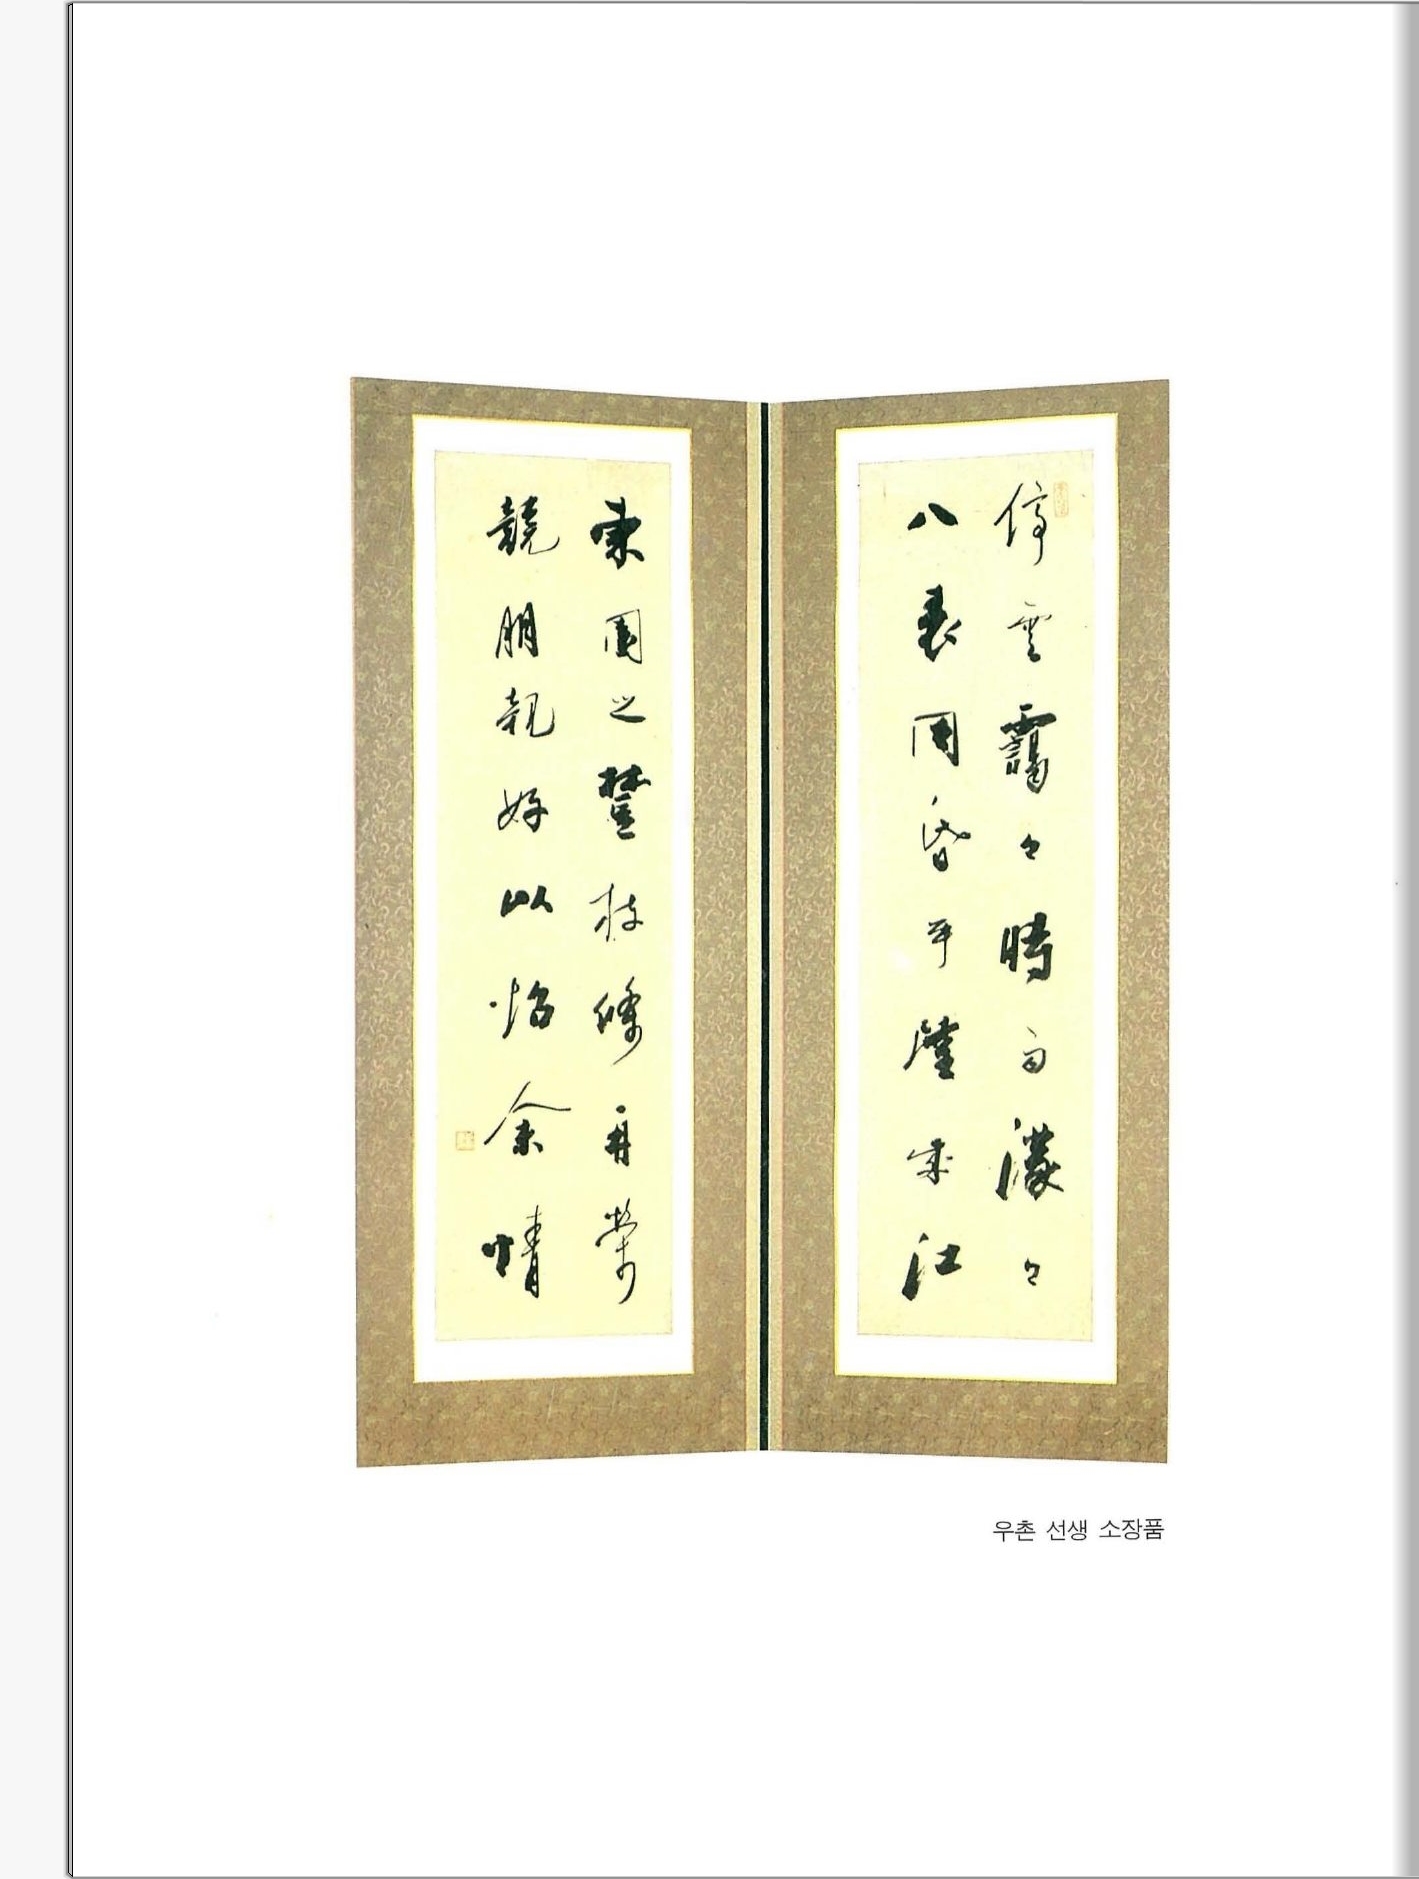 停雲靄々時雨濛々
八表同昏平陸成江
東園之樹枝條再榮
競朋親好以怡余情
우촌 선생 소장품